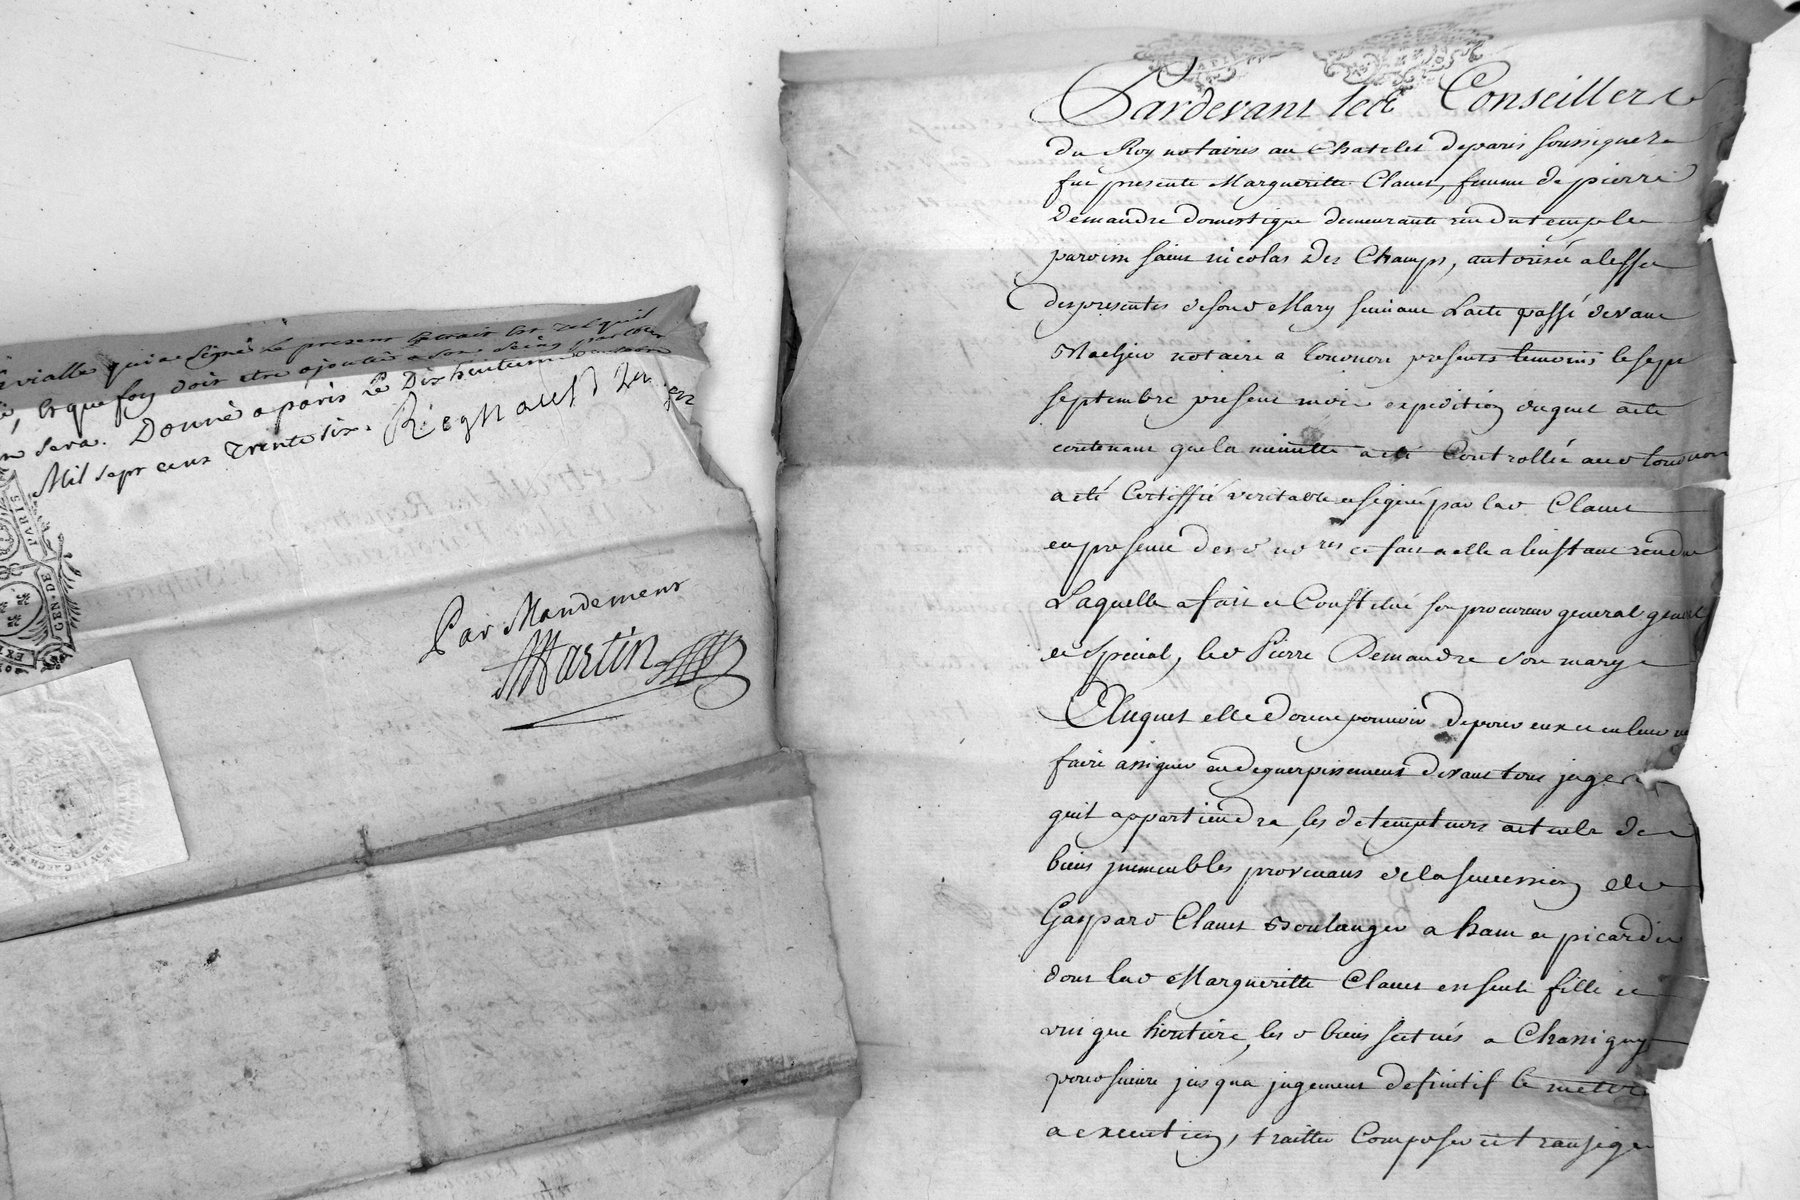 vialle qui a signé Le present Extrait Est tel quil
, Et que foy doit etre ajoutée a son seing
sera. Donné a paris Le Dixhuit
Mil sept cens Trente six. Regnault
PARIS
GEN·DE
Par Mandement
Martin
Pardevant les Conseillers
du Roy notaires au Chatelet deparis soussignez
fut presente Margueritte Clauet, femme de pierre
Demandre domestique demeurante rue du temple
paroisse saint nicolas Des Champs, autorisée a leffet
des presentes de son d Mary suivant Lacte passé devant
notaire a presents temoins le sept
septembre present mois expedition duquel acte
contenant que la minutte a eté Controllée aud
a eté Certiffié veritable et signé par lad Clauet
en presence des d nores ce fait a elle a linstant rendu
Laquelle a fait et Constitué son procureur general general
et special, led Pierre Demandre son mary
Auquel elle donne pouvoir de pour eux et en leur
faire assigner en deguerpissement devant tous juges
quil appartiendra, les detempteurs actuels de
biens jmmeubles provenans de la succession de
Gaspard Clauet Boulanger a ham en picardie
dont lad Margueritte Clauet est seule fille et
unique heritiere, les d biens scitués a Chassigny
poursuivre jusqua jugement definitif le mettre
a execution, traitter Composer et transiger